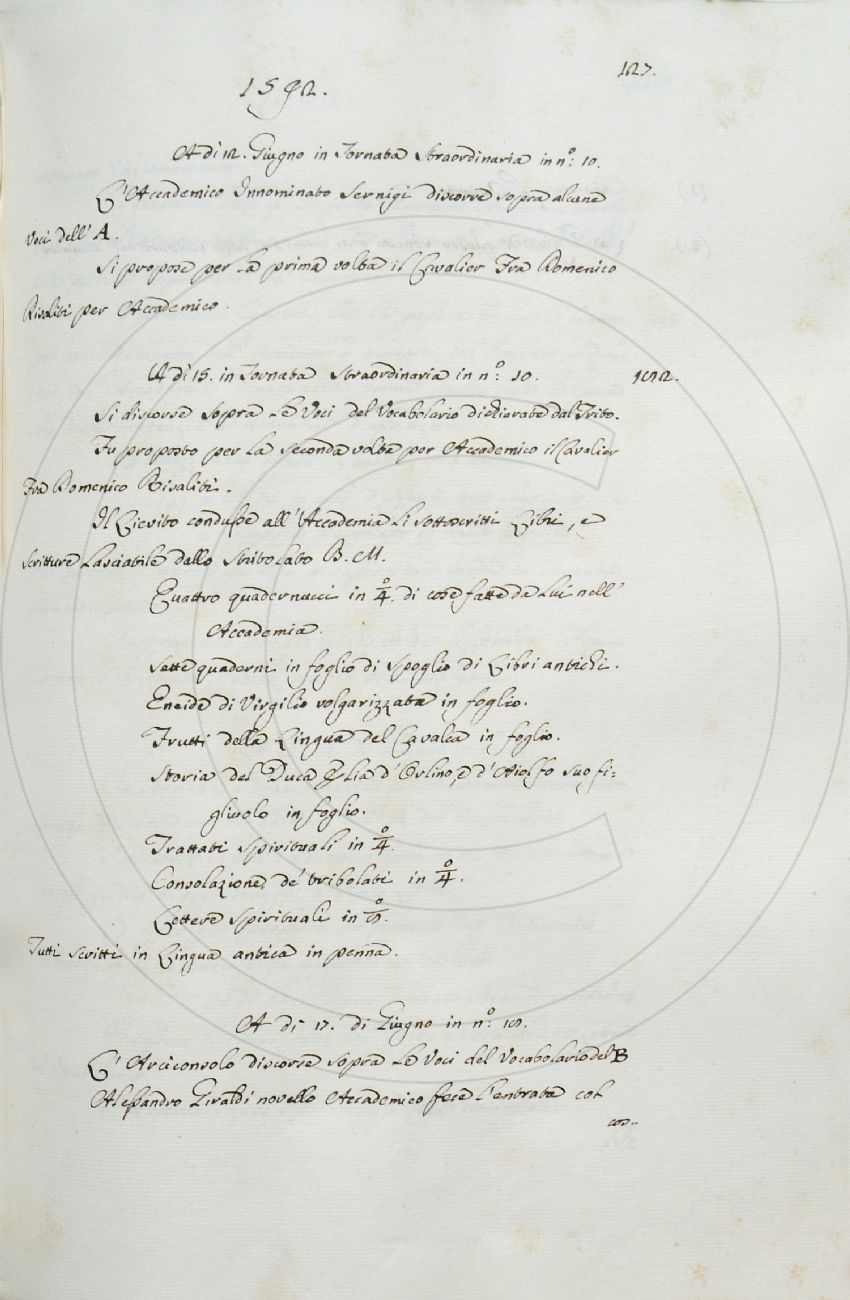 127.
1592.
A dì 12. Giugno in Tornata Straordinaria in n.º: 10.
L'Accademico Innominato Sernigi discorre sopra alcune
Voci dell'A.
Si propose per la prima volta il Cavalier Fra Domenico
Risaliti per Accademico.
A dì 15. in Tornata Straordinaria in n.º: 10.
192.
Si discorse sopra le Voci del Vocabolario dichiarate dal Trito.
Fu proposto per la seconda volta per Accademico il Cavalier
Fra Domenico Risaliti.
Il Lievito condusse all'Accademia li sottoscritti Libri, e
scritture lasciatile dallo Stritolato B. M.
Quattro quadernucci in 4º. di cose fatte da Lui nell'
Accademia.
Sette quaderni in foglio di Spoglio di Libri antichi.
Eneide di Virgilio volgarizzata in foglio.
Frutti della Lingua del Cavalca in foglio.
Storia del Duca Elia d'Orlino, e d'Aiolfo suo fi:
gliuolo in foglio.
Trattati Spirituali in 4º.
Consolazione de' tribolati in 4º.
Lettere Spirituali in 8º.
Tutti scritti in Lingua antica in penna.
A dì 17. di Giugno in n.º: 18.
L'Arciconsolo discorre sopra le Voci del Vocabolario del B
Alessandro Giraldi novello Accademico fece l'entrata col